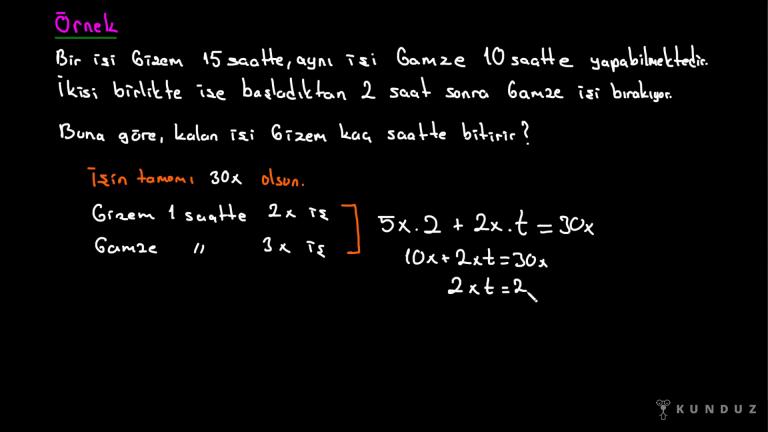 Örnek
Bir işi Gizem 15 saatte, aynı işi Gamze 10 saatte yapabilmektedir.
İkisi birlikte işe başladıktan 2 saat sonra Gamze işi bırakıyor.
Buna göre, kalan işi Gizem kaç saatte bitirir?
İşin tamamı 30x olsun.
Gizem 1 saatte 2x iş
Gamze " 3x iş
5x.2 + 2x.t = 30x
10x + 2xt = 30x
2xt = 2
KUNDUZ